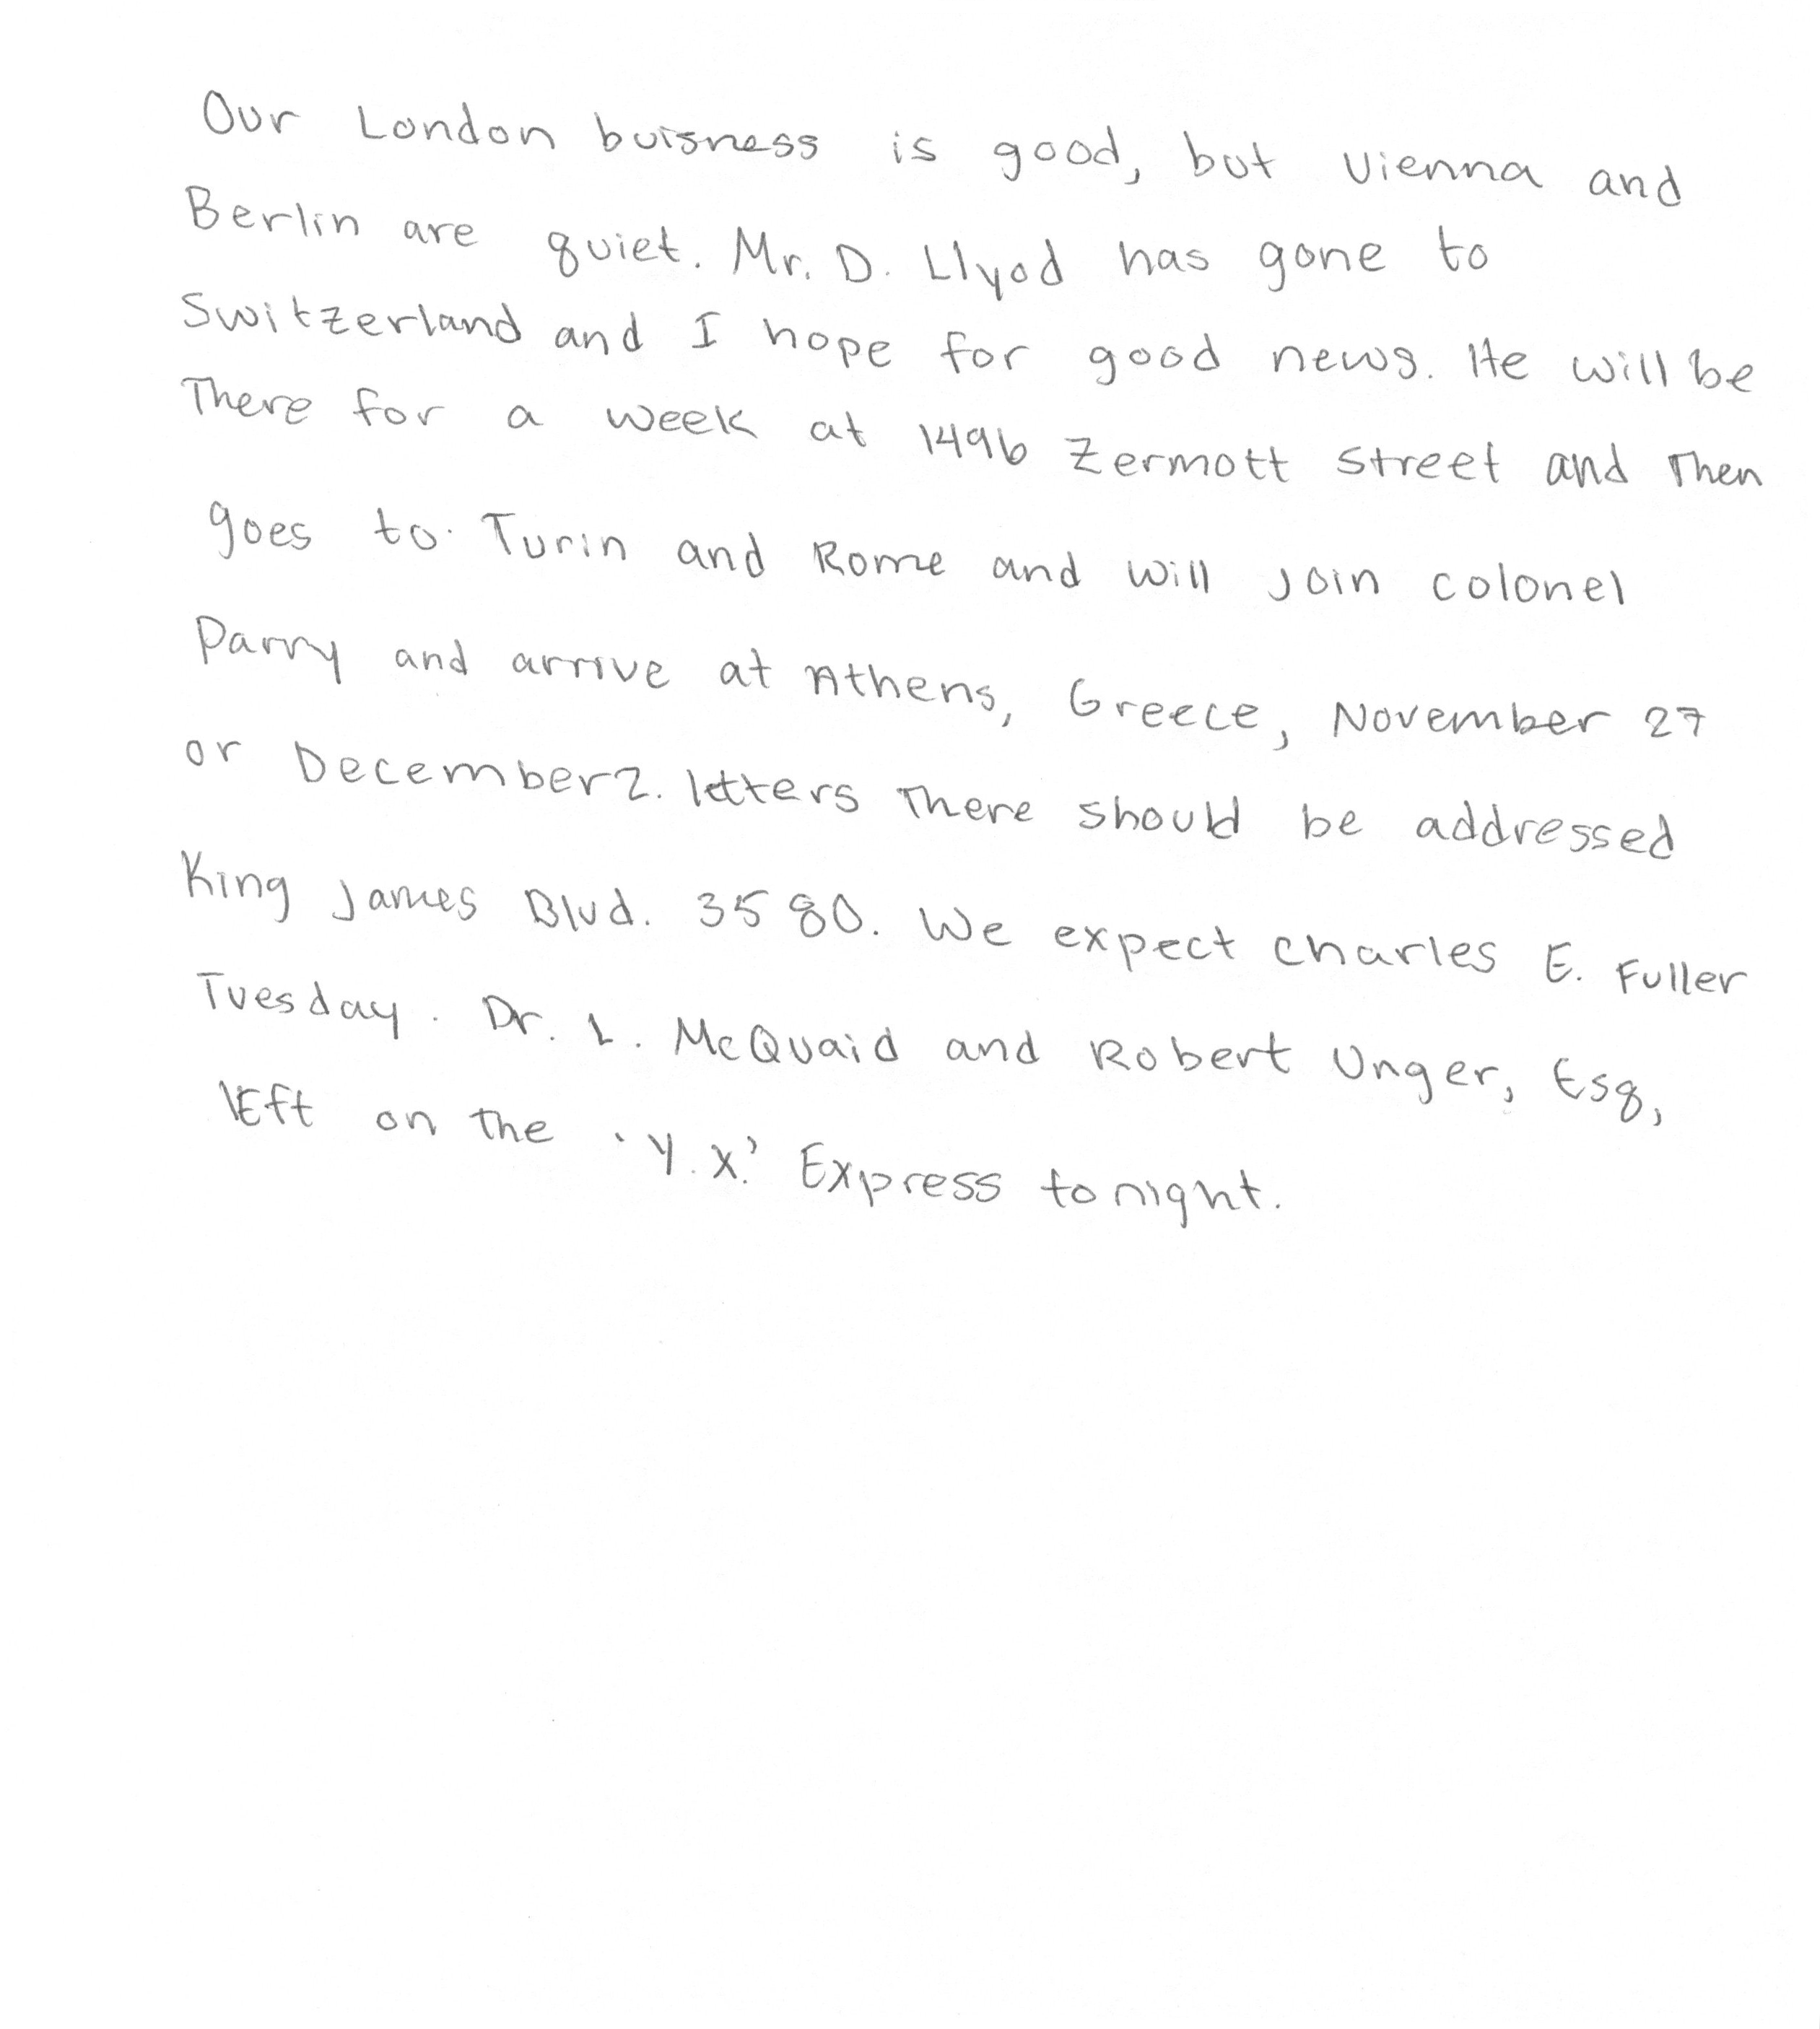 Our London buisness is good, but Vienna and
Berlin are quiet. Mr. D. Llyod has gone to
Switzerland and I hope for good news. He will be
There for a week at 1496 Zermott street and Then
goes to Turin and Rome and will Join colonel
Parry and arrive at Athens, Greece, November 27
or December 2. letters There should be addressed
King James Blvd. 3580. We expect Charles E. Fuller
Tuesday. Dr. L. McQuaid and Robert Unger, Esq,
left on the 'Y.X.' Express tonight.